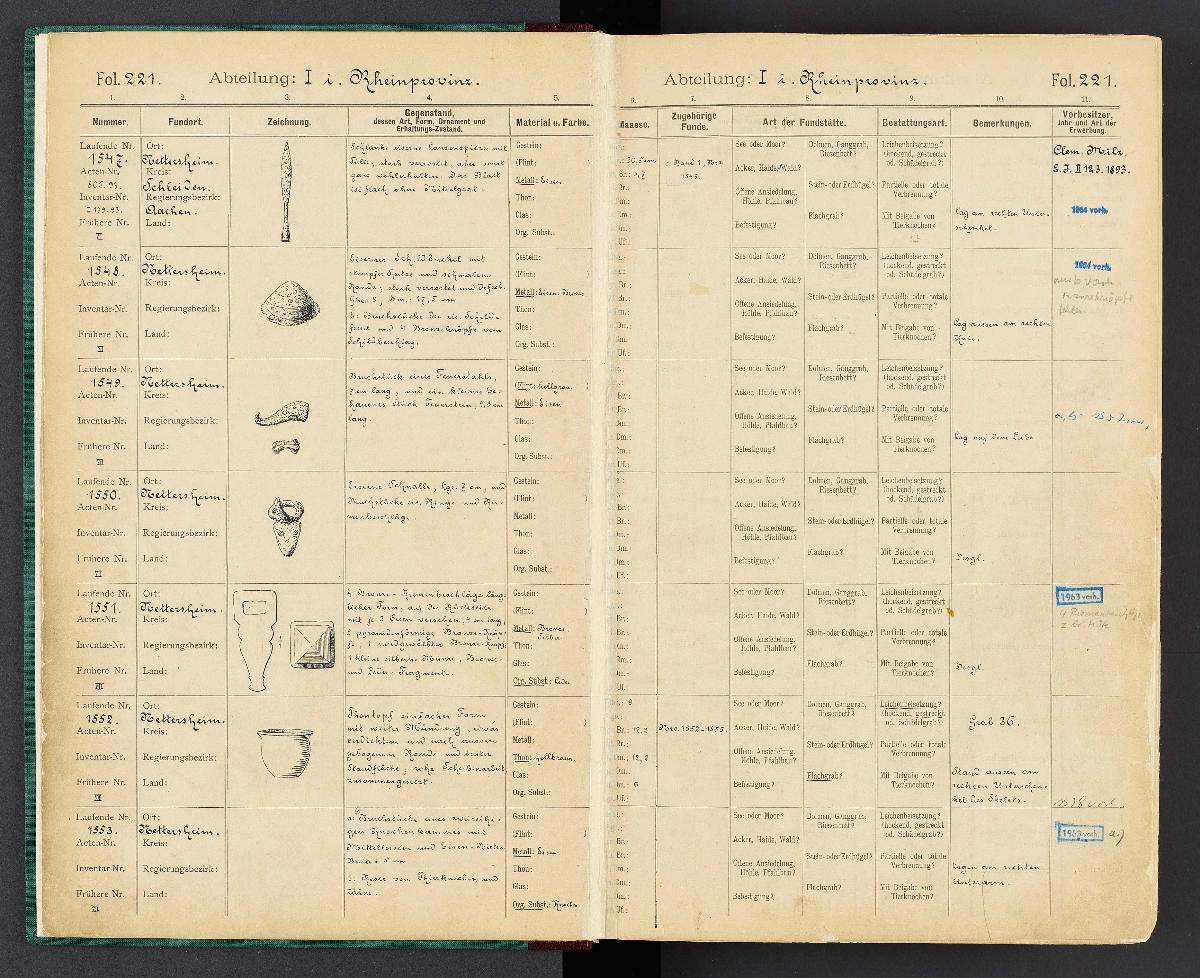 Fol. 221. Abteilung: I i. Rheinprovinz.
1. 2. 3. 4. 5.
Nummer. Fundort. Zeichnung. Gegenstand, dessen Art, Form, Ornament und Erhaltungs-Zustand. Material u. Farbe.
Laufende Nr. 1547.
Acten-Nr. 505. 93.
Inventar-Nr. I 139. 93.
Frühere Nr.
VI
Ort: Nettersheim.
Kreis: Schleiden.
Regierungsbezirk: Aachen.
Land:
Schlanke eiserne Lanzenspitze mit
Tülle, stark verrostet, aber sonst
ganz wohlerhalten. Das Blatt
ist flach ohne Mittelgrat.
Gestein:
(Flint: )
Metall: Eisen
Thon:
Glas:
Org. Subst.:
Laufende Nr. 1548.
Acten-Nr.
Inventar-Nr.
Frühere Nr.
VI
Ort: Nettersheim.
Kreis:
Regierungsbezirk:
Land:
Eiserner Schildbuckel mit
stumpfer Spitze und schmalem
Rande, stark verrostet und defect.
b: Bruchstücke der eis. Schild-
fessel und 4 Bronzeknöpfe vom
Schildbeschlag.
Gestein:
(Flint: )
Metall: Eisen. Bronze
Thon:
Glas:
Org. Subst.:
Laufende Nr. 1549.
Acten-Nr.
Inventar-Nr.
Frühere Nr.
VI
Ort: Nettersheim.
Kreis:
Regierungsbezirk:
Land:
Bruchstück eines Feuerstahls,
7 cm lang, und ein kleines be-
hauenes Stück Feuerstein, 2,5 cm
lang.
Gestein:
(Flint: hellgrau. )
Metall: Eisen
Thon:
Glas:
Org. Subst.:
Laufende Nr. 1550.
Acten-Nr.
Inventar-Nr.
Frühere Nr.
VI
Ort: Nettersheim.
Kreis:
Regierungsbezirk:
Land:
Eiserne Schnalle, lge. 7 cm, und
Bruchstücke eis. Ringe und Rie-
menbeschläge.
Gestein:
(Flint: )
Metall:
Thon:
Glas:
Org. Subst.:
Laufende Nr. 1551.
Acten-Nr.
Inventar-Nr.
Frühere Nr.
VI
Ort: Nettersheim.
Kreis:
Regierungsbezirk:
Land:
4 Bronze-Riemenbeschläge läng-
licher Form, auf der Rückseite
mit je 3 Ösen versehen, 4 cm lang,
2 pyramidenförmige Bronze-Knöp-
fe, 1 rundgewölbter Bronze-Knopf,
1 kleine silberne Münze, Bronze-
und Leder-Fragmente.
Gestein:
(Flint: )
Metall: Bronze. Silber
Thon:
Glas:
Org. Subst.: Leder
Laufende Nr. 1552.
Acten-Nr.
Inventar-Nr.
Frühere Nr.
VI
Ort: Nettersheim.
Kreis:
Regierungsbezirk:
Land:
Thontopf einfacher Form,
mit weiter Mündung, etwas
verdicktem und nach aussen
gebogenem Rande und breiter
Standfläche; rohe Scheibenarbeit,
zusammengesetzt.
Gestein:
(Flint: )
Metall:
Thon: hellbraun.
Glas:
Org. Subst.:
Laufende Nr. 1553.
Acten-Nr.
Inventar-Nr.
Frühere Nr.
VI
Ort: Nettersheim.
Kreis:
Regierungsbezirk:
Land:
a: Bruchstücke eines zweireihi-
gen Knochenkammes mit
Mittelleisten und Eisen-Nieten
Breite 5 cm
b: Reste von Thierknochen und
Zähne.
Gestein:
(Flint: )
Metall: Eisen
Thon:
Glas:
Org. Subst.: Knochen
Abteilung: I i. Rheinprovinz. Fol. 221.
6. 7. 8. 9. 10. 11.
Maasse. Zugehörige Funde. Art der Fundstätte. Bestattungsart. Bemerkungen. Vorbesitzer. Jahr und Art der Erwerbung.
See oder Moor? Dolmen, Ganggrab, Riesenbett?
Acker, Haide, Wald? Stein- oder Erdhügel?
Offene Ansiedelung, Höhle, Pfahlbau? Flachgrab?
Befestigung?
Leichenbeisetzung? (hockend, gestreckt od. Schädelgrab?)
Partielle oder totale Verbrennung?
Mit Beigabe von Tierknochen?
Lag am rechten Unter-
schenkel.
Clem. Milz.
S. J. II 123. 1893.
1964 vorh.
See oder Moor? Dolmen, Ganggrab, Riesenbett?
Acker, Haide, Wald? Stein- oder Erdhügel?
Offene Ansiedelung, Höhle, Pfahlbau? Flachgrab?
Befestigung?
Leichenbeisetzung? (hockend, gestreckt od. Schädelgrab?)
Partielle oder totale Verbrennung?
Mit Beigabe von Tierknochen?
Lag aussen am rechten
1964 vorh.
fehlen
See oder Moor? Dolmen, Ganggrab, Riesenbett?
Acker, Haide, Wald? Stein- oder Erdhügel?
Offene Ansiedelung, Höhle, Pfahlbau? Flachgrab?
Befestigung?
Leichenbeisetzung? (hockend, gestreckt od. Schädelgrab?)
Partielle oder totale Verbrennung?
Mit Beigabe von Tierknochen?
Lag auf dem Leibe
See oder Moor? Dolmen, Ganggrab, Riesenbett?
Acker, Haide, Wald? Stein- oder Erdhügel?
Offene Ansiedelung, Höhle, Pfahlbau? Flachgrab?
Befestigung?
Leichenbeisetzung? (hockend, gestreckt od. Schädelgrab?)
Partielle oder totale Verbrennung?
Mit Beigabe von Tierknochen?
Desgl.
See oder Moor? Dolmen, Ganggrab, Riesenbett?
Acker, Haide, Wald? Stein- oder Erdhügel?
Offene Ansiedelung, Höhle, Pfahlbau? Flachgrab?
Befestigung?
Leichenbeisetzung? (hockend, gestreckt od. Schädelgrab?)
Partielle oder totale Verbrennung?
Mit Beigabe von Tierknochen?
Desgl.
1963 vorh.
Br.: 12,2
Dm.: 12,2
Dm.: 6
Nro. 1552-1555.
See oder Moor? Dolmen, Ganggrab, Riesenbett?
Acker, Haide, Wald? Stein- oder Erdhügel?
Offene Ansiedelung, Höhle, Pfahlbau? Flachgrab?
Befestigung?
Leichenbeisetzung? (hockend, gestreckt od. Schädelgrab?)
Partielle oder totale Verbrennung?
Mit Beigabe von Tierknochen?
Grab 36.
Stand aussen am
rechten Unterschen-
kel des Skelets.
See oder Moor? Dolmen, Ganggrab, Riesenbett?
Acker, Haide, Wald? Stein- oder Erdhügel?
Offene Ansiedelung, Höhle, Pfahlbau? Flachgrab?
Befestigung?
Leichenbeisetzung? (hockend, gestreckt od. Schädelgrab?)
Partielle oder totale Verbrennung?
Mit Beigabe von Tierknochen?
Lagen am rechten
Unterarm.
1963 vorh. a.)